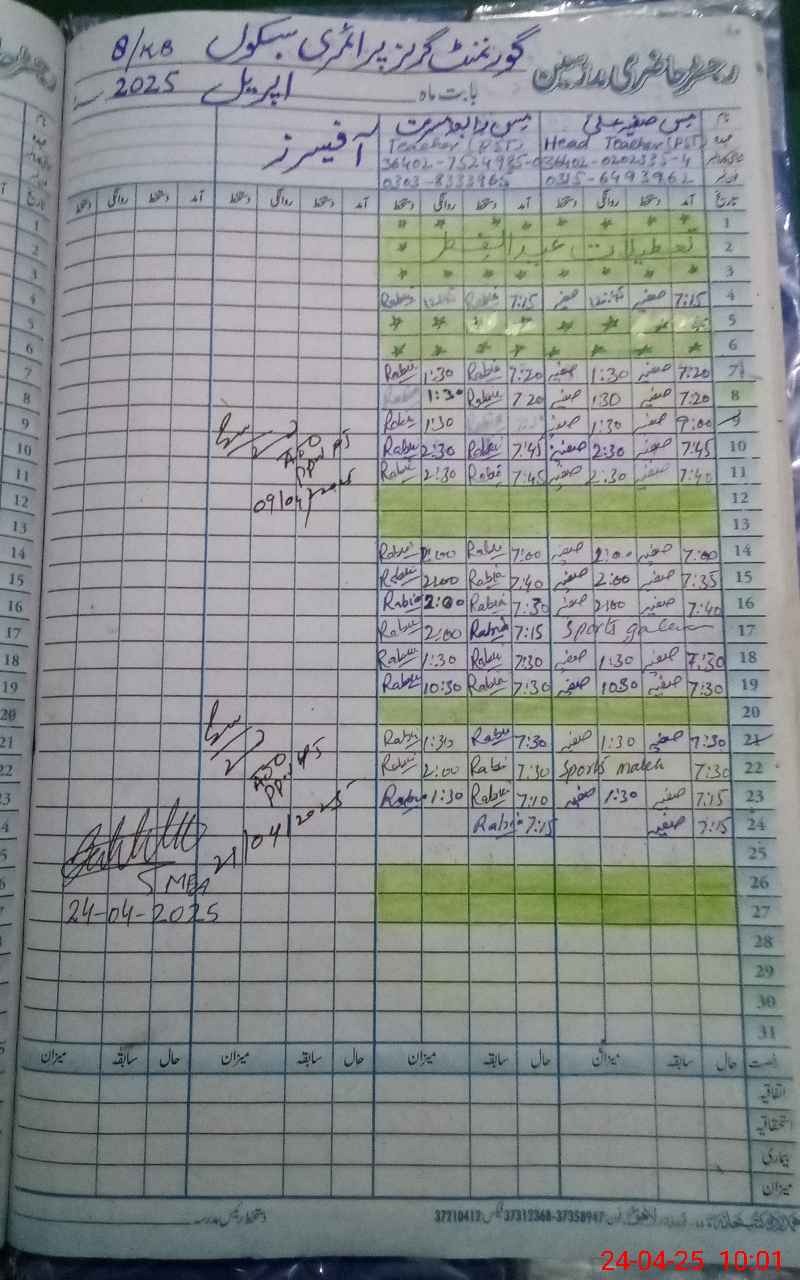 رجسٹر حاضری مدرسین گورنمنٹ گرلز پرائمری سکول 8/KB
بابت ماہ اپریل 2025
نام مس صفیہ علی مس رابعہ مسرت آفیسرز
عہدہ Head Teacher (PST) Teacher (PST)
36402-0202335-4 36402-7524985-0
0315-6493962 0303-8333965
تاریخ آمد دستخط روانگی دستخط آمد دستخط روانگی دستخط آمد دستخط روانگی دستخط آمد دستخط روانگی دستخط
1 * * * * * * *
2 تعطیلات عید الفطر *
3 * * * * * * *
4 7:15 صفیہ صفیہ 7:15 Rabia Rabia
5 * * * * * *
6 * * * * * * *
7 7:20 صفیہ 1:30 صفیہ 7:20 Rabia 1:30 Rabia
8 7:20 صفیہ 1:30 صفیہ 7:20 Rabia 1:30
9 9:00 صفیہ 1:30 صفیہ 1:30 Rabia
10 7:45 صفیہ 2:30 صفیہ 7:45 Rabia 2:30 Rabia
11 7:40 صفیہ 2:30 صفیہ 7:45 Rabia 2:30 Rabia
AEO
09/04/2025
12
13
14 7:00 صفیہ 2:00 صفیہ 7:00 Rabia 2:00 Rabia
15 7:35 صفیہ 2:00 صفیہ 7:40 Rabia 2:00 Rabia
16 7:40 صفیہ 2:00 صفیہ 7:30 Rabia 2:00 Rabia
17 Sports 7:15 Rabia 2:00 Rabia
18 7:30 صفیہ 1:30 صفیہ 7:30 Rabia 1:30 Rabia
19 7:30 صفیہ 10:30 صفیہ 7:30 Rabia 10:30 Rabia
20
21 7:30 صفیہ 1:30 صفیہ 7:30 Rabia 1:30 Rabia
22 7:30 Sports match 7:30 Rabia 2:00 Rabia
AEO
23 7:15 صفیہ 1:30 صفیہ 7:10 Rabia 1:30 Rabia
24 7:15 صفیہ 7:15 Rabia
21/04/2025
25
26
MEA
27
24-04-2025
28
29
30
31
حال سابقہ میزان حال سابقہ میزان حال سابقہ میزان حال سابقہ میزان
اتفاقیہ
استحقاقیہ
بیماری
میزان
37312368-37358947 37210412
24-04-25 10:01